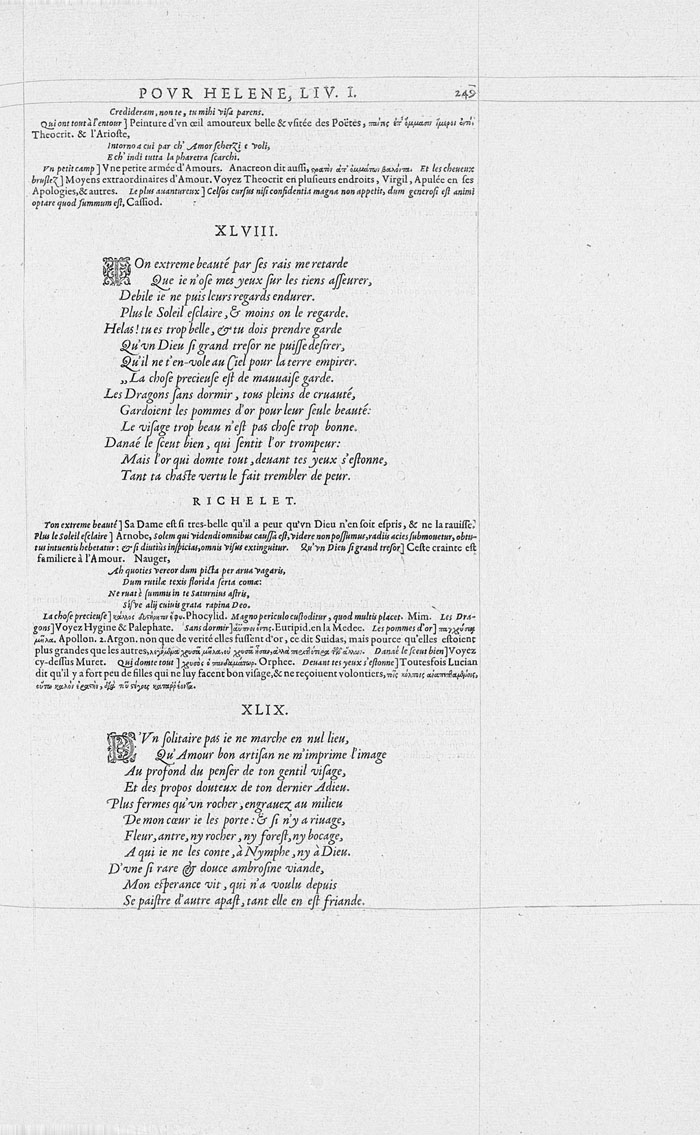 POVR HELENE, LIV. I. 249
Credideram, non te, tu mihi visa parens.
Qui ont tout à l'entour] Peinture d'vn œil amoureux belle & vsitée des Poëtes,
Theocrit. & l'Arioste,
Intorno a cui par ch' Amor scherzi e voli,
E ch' indi tutta la pharetra scarchi.
Vn petit camp] Vne petite armée d'Amours. Anacreon dit aussi, Et les cheueux
bruslez] Moyens extraordinaires d'Amour. Voyez Theocrit en plusieurs endroits, Virgil, Apulée en ses
Apologies, & autres. Le plus auantureux] Celsos cursus nisi confidentia magna non appetit, dum generosi est animi
optare quod summum est, Cassiod.
XLVIII.
TOn extreme beauté par ses rais me retarde
Que ie n'ose mes yeux sur les tiens asseurer,
Debile ie ne puis leurs regards endurer.
Plus le Soleil esclaire, & moins on le regarde.
Helas! tu es trop belle, & tu dois prendre garde
Qu'vn Dieu si grand tresor ne puisse desirer,
Qu'il ne t'en-vole au Ciel pour la terre empirer.
„La chose precieuse est de mauuaise garde.
Les Dragons sans dormir, tous pleins de cruauté,
Gardoient les pommes d'or pour leur seule beauté:
Le visage trop beau n'est pas chose trop bonne.
Danaé le sceut bien, qui sentit l'or trompeur:
Mais l'or qui domte tout, deuant tes yeux s'estonne,
Tant ta chaste vertu le fait trembler de peur.
RICHELET.
Ton extreme beauté] Sa Dame est si tres-belle qu'il a peur qu'vn Dieu n'en soit espris, & ne la rauisse.
Plus le Soleil esclaire] Arnobe, Solem qui videndi omnibus caussa est, videre non possumus, radiis acies submouetur, obtu-
tus intuentis hebetatur: & si diutius inspicias, omnis visus extinguitur. Qu'vn Dieu si grand tresor] Ceste crainte est
familiere à l'Amour. Nauger,
Ah quoties vereor dum picta per arua vagaris,
Dum rutilæ texis florida serta comæ:
Ne ruat è summis in te Saturnius astris,
Sisve alij cuiuis grata rapina Deo.
La chose precieuse] Phocylid. Magno periculo custoditur, quod multis placet. Mim. Les Dra-
gons] Voyez Hygine & Palephate. Sans dormir] Euripid. en la Medee. Les pommes d'or]
Apollon. 2. Argon. non que de verité elles fussent d'or, ce dit Suidas, mais pource qu'elles estoient
plus grandes que les autres, Danaé le sceut bien] Voyez
cy-dessus Muret. Qui domte tout] Orphee. Deuant tes yeux s'estonne] Toutesfois Lucian
dit qu'il y a fort peu de filles qui ne luy facent bon visage, & ne reçoiuent volontiers,
XLIX.
D'Vn solitaire pas ie ne marche en nul lieu,
Qu'Amour bon artisan ne m'imprime l'image
Au profond du penser de ton gentil visage,
Et des propos douteux de ton dernier Adieu.
Plus fermes qu'vn rocher, engrauez au milieu
De mon cœur ie les porte: & si n'y a riuage,
Fleur, antre, ny rocher, ny forest, ny bocage,
A qui ie ne les conte, à Nymphe, ny à Dieu.
D'vne si rare & douce ambrosine viande,
Mon esperance vit, qui n'a voulu depuis
Se paistre d'autre apast, tant elle en est friande.